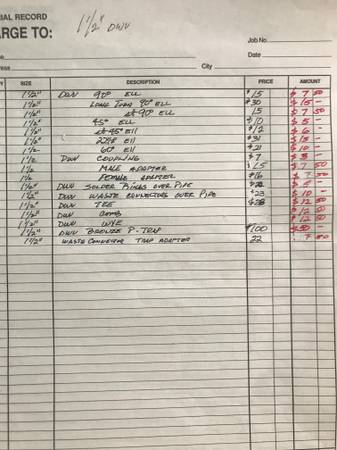 1½" DWV
IAL RECORD
ARGE TO:
Job No.
Date
City
SIZE DESCRIPTION PRICE AMOUNT
1½" DWV 90° ELL $15 $7 50
1½" LONG TURN 90° ELL $30 $15 -
1½" st 90 ELL 15 $7 50
1½" 45° ELL $10 $5 -
1½" st 45° Ell $12 $6 -
1½" 22½ Ell $31 $15 -
1½ 60 Ell $21 $10 -
1½ DWV COUPLING $7 $3 -
1½ MALE ADAPTER 15 7 50
1½ FEMALE ADAPTER $16 7 50
1½" DWV SOLDER RINGS OVER PIPE $5 -
1½" DWV WASTE CONNECTORS OVER PIPE $23 $10 -
1½" DWV TEE $12 50
1½" DWV COMB $12 50
1½" DWV WYE $12 50
1½" DWV BRONZE P-TRAP $100 $50 -
1½" WASTE CONNECTOR TRAP ADAPTER 22 7 50